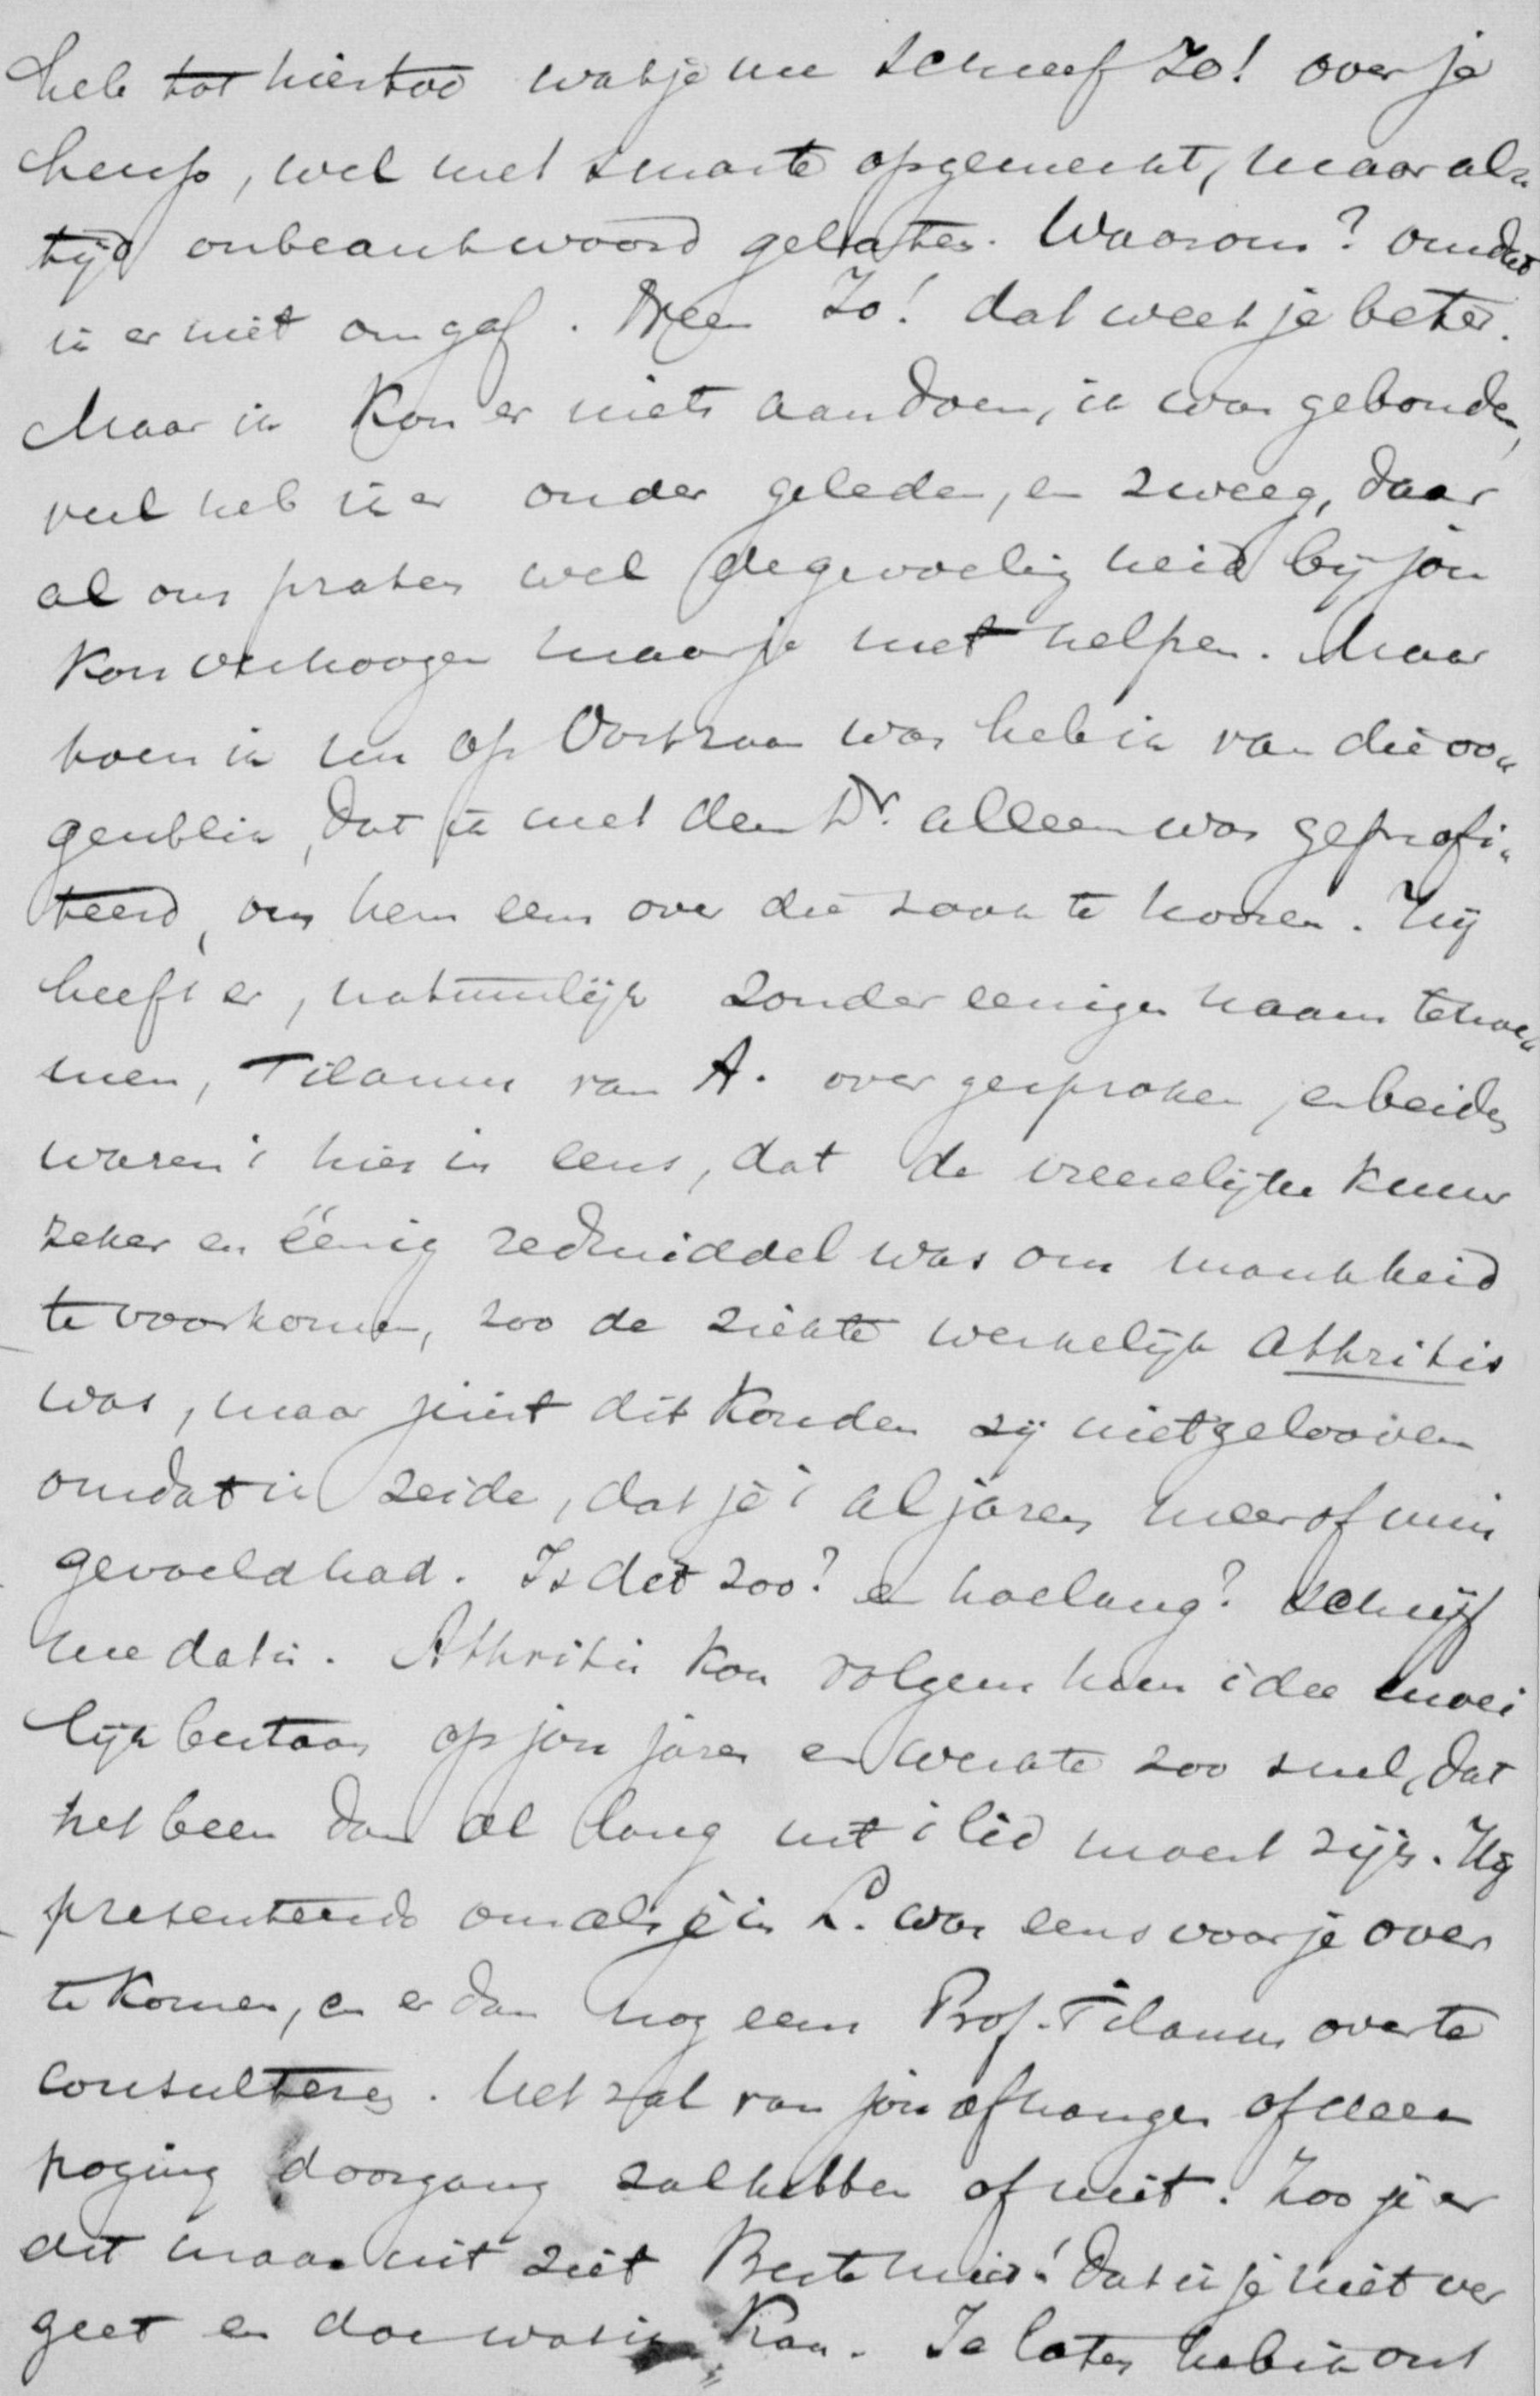 heb tot hiertoe wat je me schreef Zo! over je
heup, wel met smarte opgemerkt, maar al-
tijd onbeantwoord gelaten. Waarom? omdat
ik er niet om gaf. Neen Zo! dat weet je beter.
Maar ik kon er niets aan doen, ik was gebonden,
veel heb ik er onder geleden, en zweeg, daar
al ons praten wel de gevoeligheid bij jou
kon verhoogen maar je niet helpen. Maar
toen ik nu op Oostzaan was heb ik van die oo-
genblik, dat ik met den Dr. alleen was geprofi-
teerd, om hem eens over die zaak te hooren. Hij
heeft er, natuurlijk zonder eenigen naam te noe-
men, Tilanus van A. over gesproken, en beiden
waren 't hier in eens, dat de vreeselijke kuur
zeker en éénig redmiddel was om mankheid
te voorkomen, zoo de ziekte werkelijk Athritis
was, maar juist dit konden zij niet gelooven
omdat ik zeide, dat je 't al jaren meer of min
gevoeld had. Is dit zoo? en hoelang? schrijf
me dat is. Athritis kon volgens hun idee moei
lijk bestaan op jou jaren en werkte zoo snel, dat
het been dan al lang uit 't lid moest zijn. Hij
presenteerde om als je in L. was eens voor je over
te komen, en er dan nog eens Prof. Tilanus over te
consulteren. Het zal van jou afhangen of deze
poging doorgang zal hebben of niet. Zoo je er
dit maar uit ziet Beste meid! dat ik je niet ver
geet en doe wat ik kan. Je laten heb ik ont